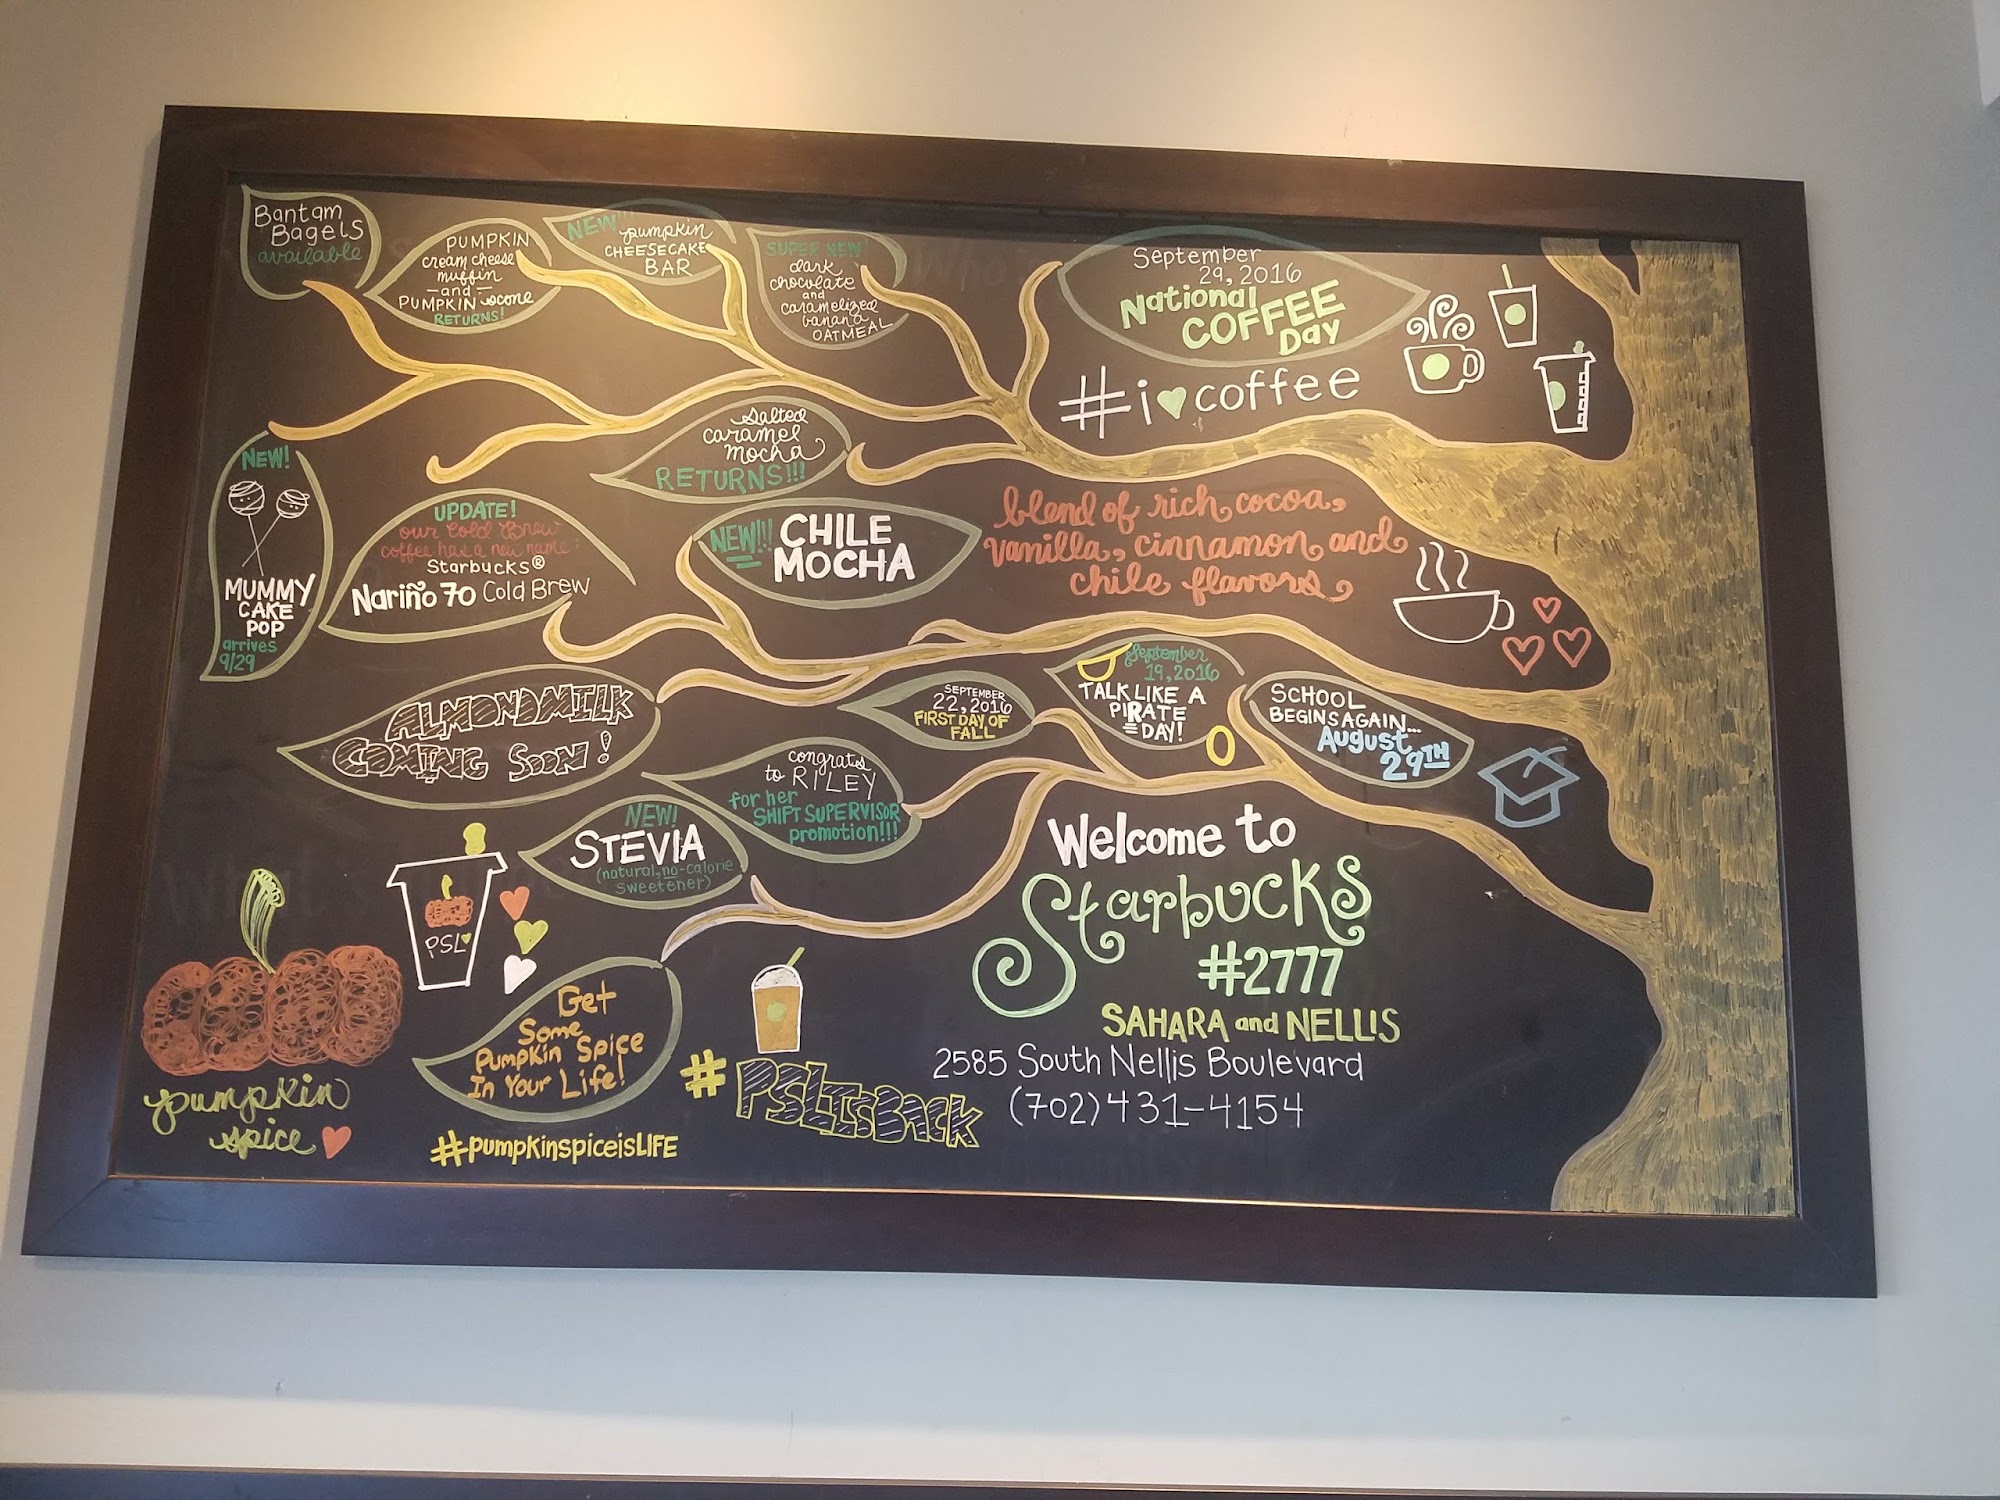 Bantam
Bagels
available
PUMPKIN
cream cheese
muffin
-and-
PUMPKIN scone
RETURNS!
NEW!!!
pumpkin
CHEESECAKE
BAR
SUPER NEW!
dark
chocolate
and
caramelized
banana
OATMEAL
September
29, 2016
National
COFFEE
Day
#i♥coffee
salted
caramel
mocha
RETURNS!!!
NEW!
MUMMY
CAKE
POP
arrives
9/29
UPDATE!
our Cold Brew
coffee has a new name:
Starbucks®
Nariño 70 Cold Brew
NEW!!!
CHILE
MOCHA
blend of rich cocoa,
vanilla, cinnamon and
chile flavors
ALMONDMILK
COMING SOON!
SEPTEMBER
22, 2016
FIRST DAY OF
FALL
September
19, 2016
TALK LIKE A
PIRATE
DAY!
SCHOOL
BEGINS AGAIN...
August
29TH
congrats
to RILEY
for her
SHIFT SUPERVISOR
promotion!!!
NEW!
STEVIA
(natural, no-calorie
sweetener)
PSL♥
pumpkin
spice ♥
Get
Some
Pumpkin Spice
In Your Life!
#pumpkinspiceisLIFE
#PSLISBACK
Welcome to
Starbucks
#2777
SAHARA and NELLIS
2585 South Nellis Boulevard
(702)431-4154